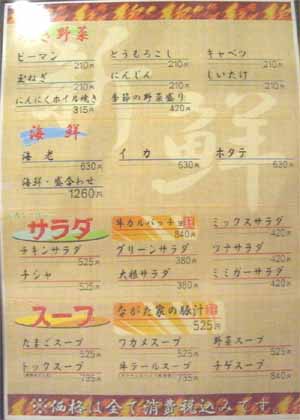 き野菜
ピーマン とうもろこし キャベツ
210円 210円 210円
玉ねぎ にんじん しいたけ
210円 210円 210円
にんにくホイル焼き 季節の野菜盛り
315円 420円
海鮮
海老 イカ ホタテ
630円 630円 630円
海鮮・盛合わせ
1260円
サラダ 牛カルパッチョ ミックスサラダ
840円 420円
チキンサラダ グリーンサラダ ツナサラダ
525円 380円 420円
チシャ 大根サラダ ミミガーサラダ
525円 380円 420円
スープ ながた家の豚汁
525円
たまごスープ ワカメスープ 野菜スープ
525円 525円 525円
トックスープ 牛テールスープ チゲスープ
735円 735円 840円
※価格は全て消費税込みです。
鮮